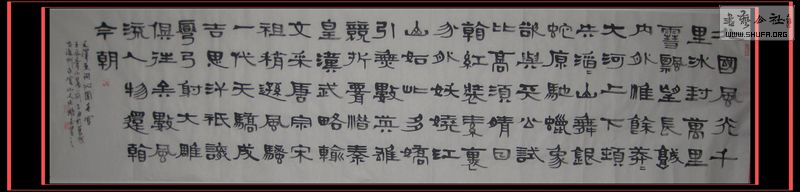 國風光千
里冰封萬里
雪飄望長城
内外惟餘莽
大河上下頓
失滔山舞銀
蛇原馳蠟象
欲與天公試
比高須晴日
看紅裝素裹
分外妖嬈江
山如此多嬌
引無數英雄
競折腰惜秦
皇漢武略輸
文采唐宗宋
祖稍遜風騷
一代天驕成
吉思汗祇識
彎弓射大雕
俱往矣數風
流人物還看
今朝
WWW.SHUFA.ORG